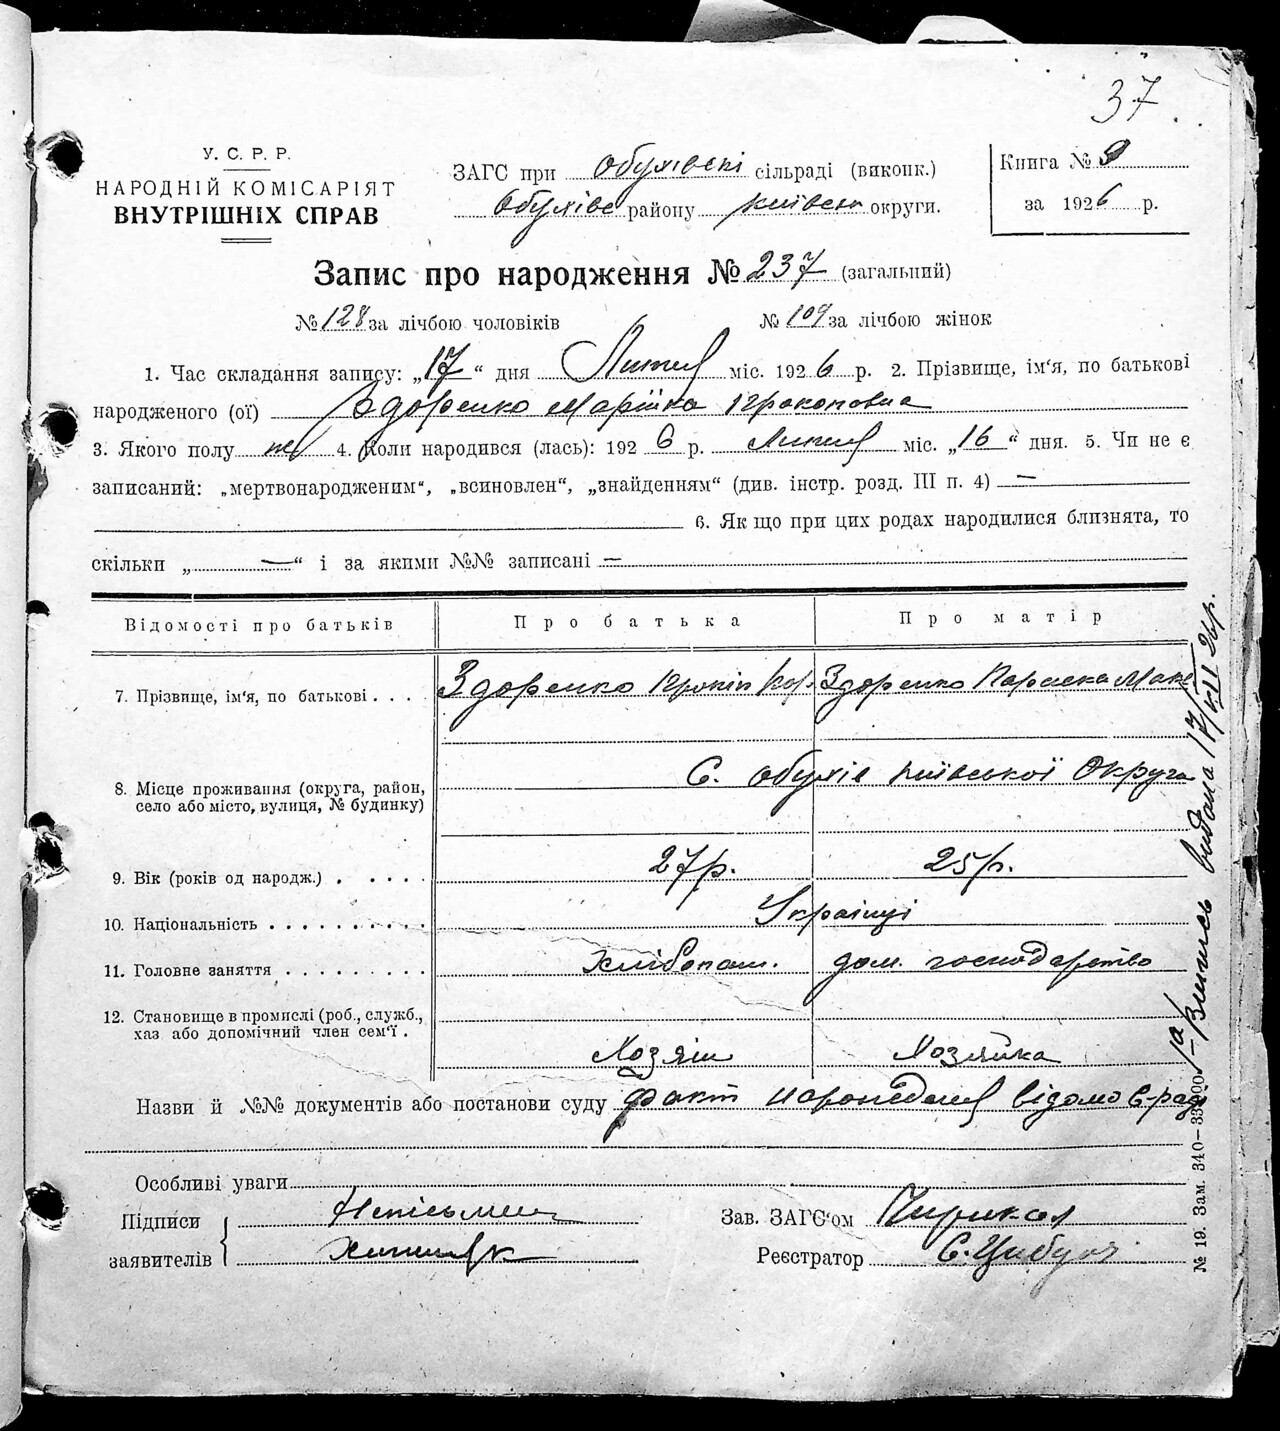 37
У. С. Р. Р.
НАРОДНІЙ КОМІСАРІЯТ
ВНУТРІШНІХ СПРАВ
ЗАГС при Обухівскі сільраді (виконк.)
Обухівс району Київськ округи.
Книга № 9
за 1926 р.
Запис про народження № 237 (загальний)
№ 128 за лічбою чоловіків № 109 за лічбою жінок
1. Час складання запису: „17“ дня Липня міс. 1926 р. 2. Прізвище, ім‘я, по батькові
народженого (ої) Здоренко Марійка Прокоповна
3. Якого полу ж 4. Коли народився (лась): 1926 р. Липня міс. „16“ дня. 5. Чи не є
записаний: „мертвонародженим“, „всиновлен“, „знайденням“ (див. інстр. розд. III п. 4) —
6. Як що при цих родах народилися близнята, то
скільки „ — “ і за якими №№ записані —
Відомості про батьків Про батька Про матір
7. Прізвище, ім‘я, по батькові . . . Здоренко Прокіп Здоренко Параска Мак
8. Місце проживання (округа, район,
село або місто, вулиця, № будинку)
С. Обухів Київської Округи
9. Вік (років од народж.) . . . . . 27р. 25р.
10. Національність . . . . . . . . . . Українці
11. Головне заняття . . . . . . . . . Хлібопаш. дом. господарство
12. Становище в промислі (роб., служб.,
хаз або допомічний член сем‘ї .
Хозяін Хозяйка
Назви й №№ документів або постанови суду Факт народження відомо С-раді
Особливі уваги
Підписи
заявителів
Неписьмен
Зав. ЗАГС‘ом
Реєстратор
Випись видана 17/VII 26р.
№ 19. Зам. 340—33000